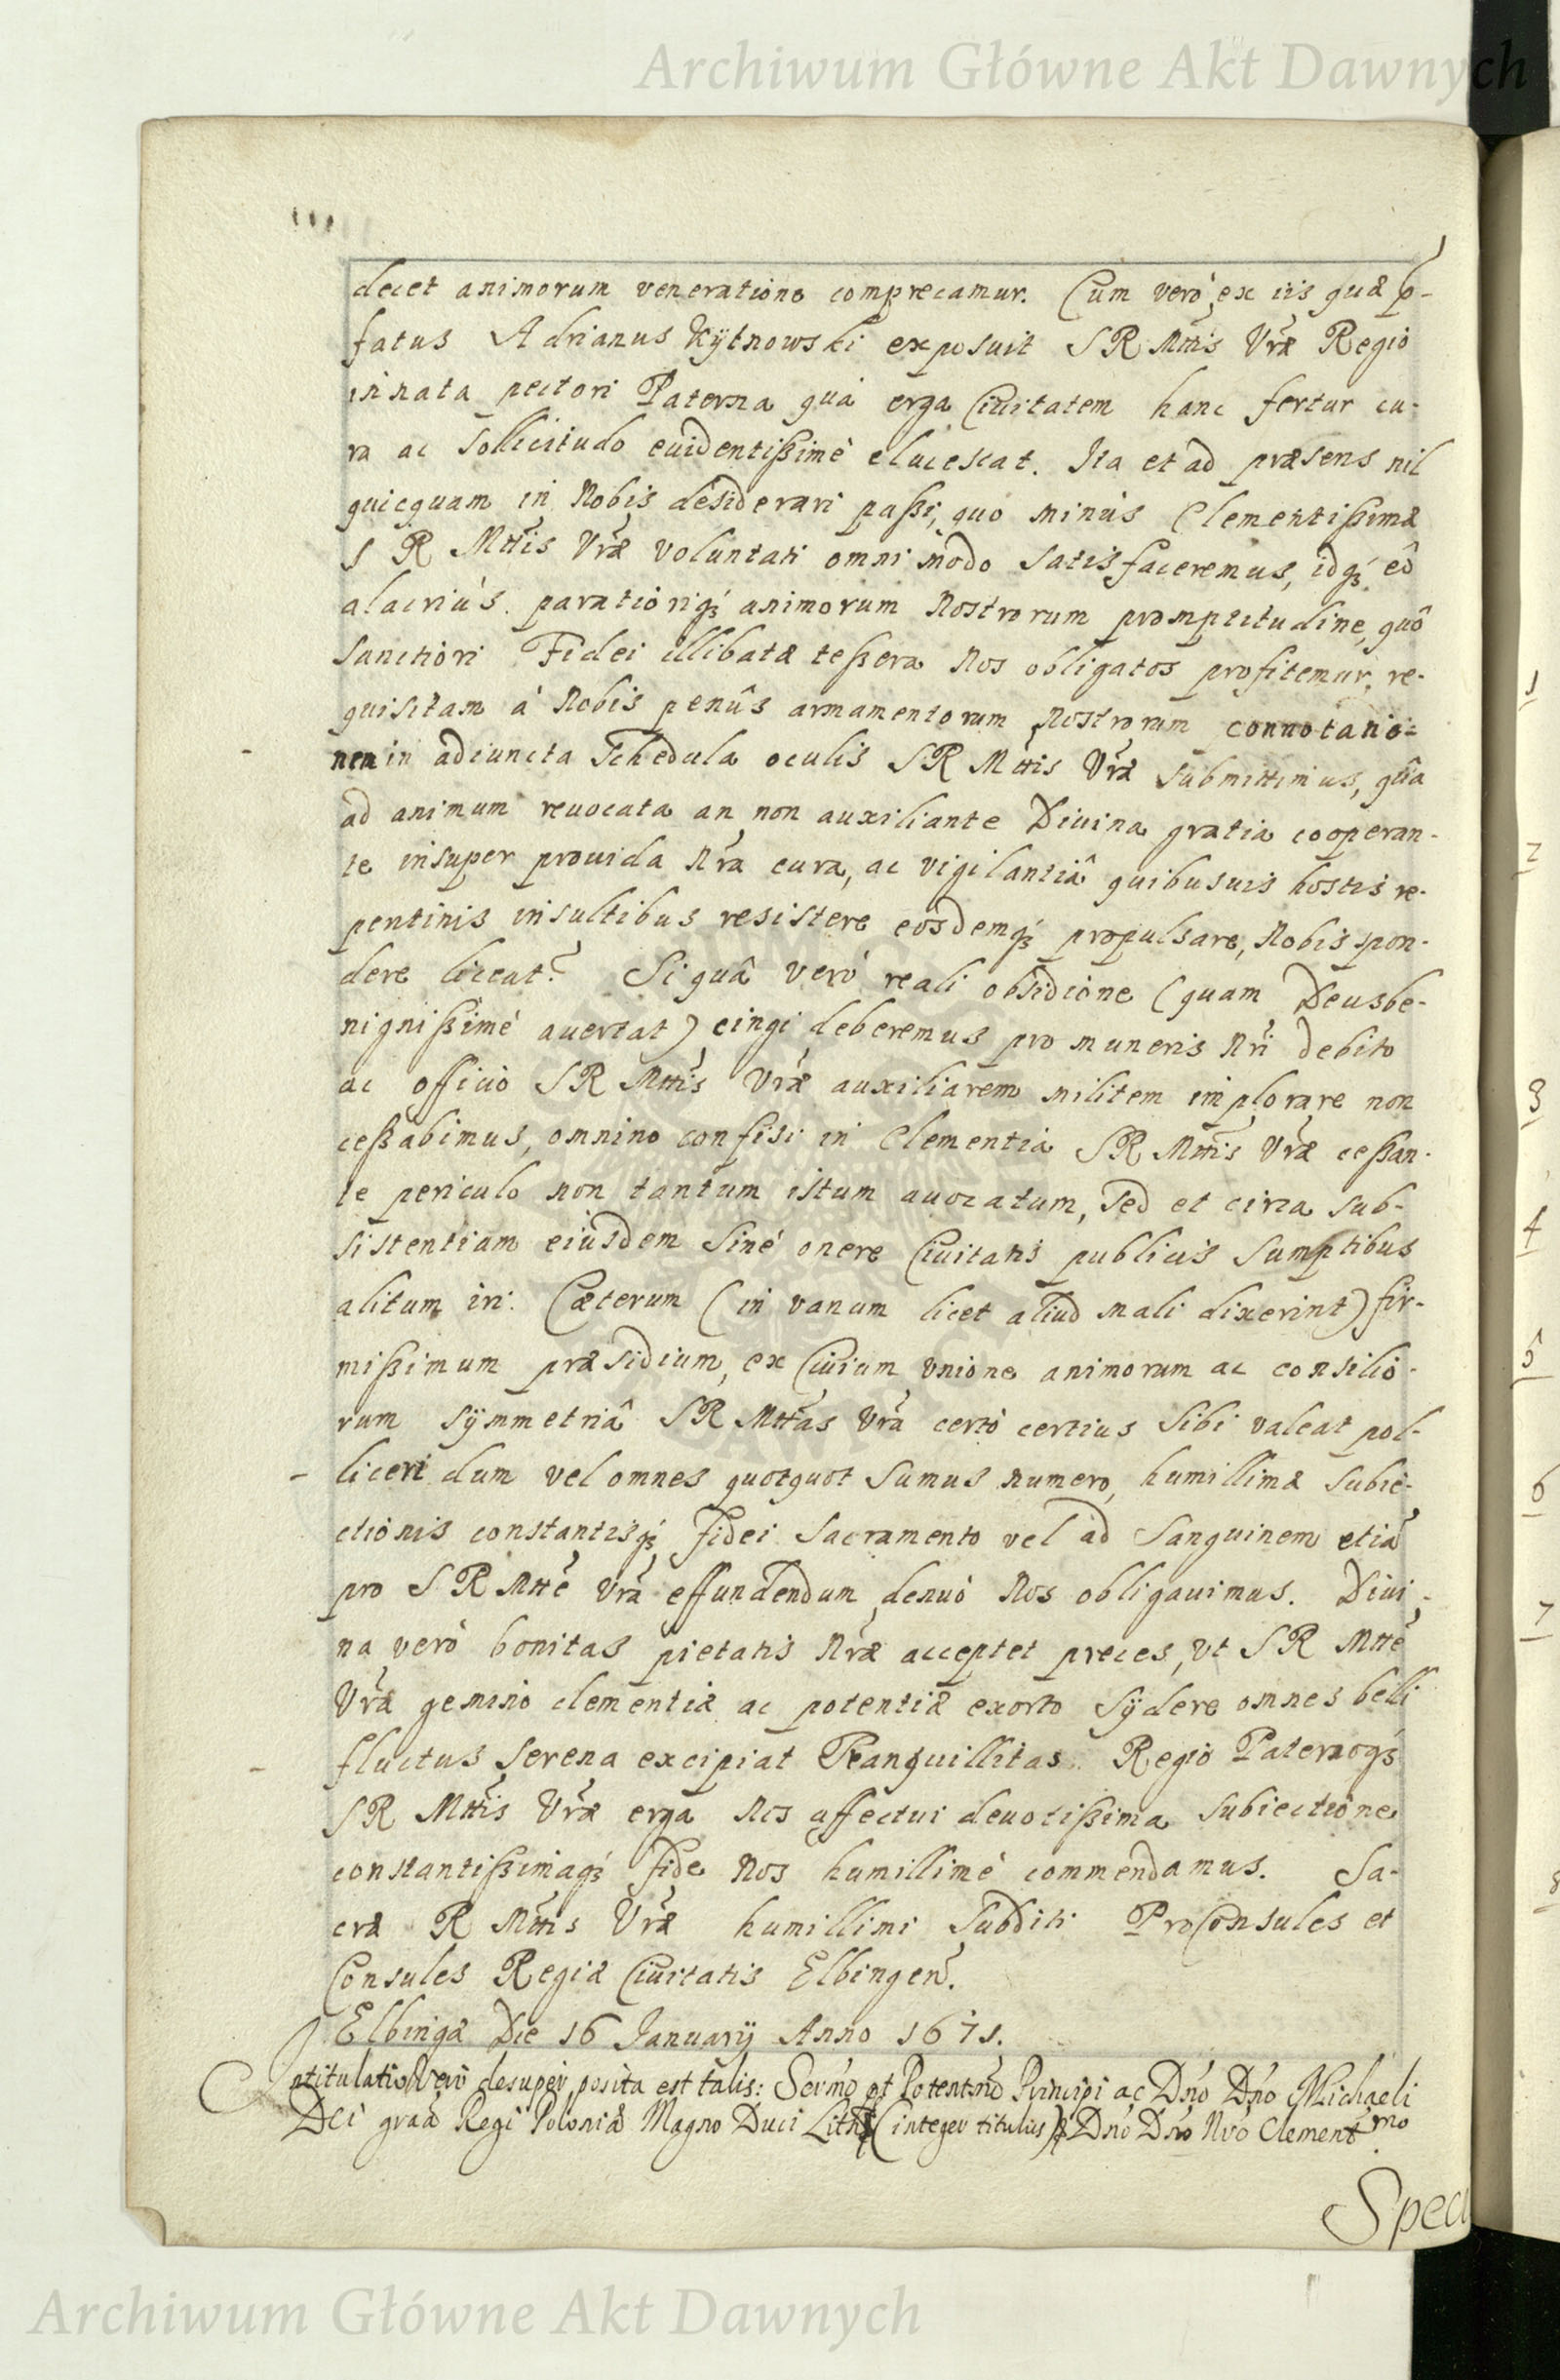 Archiwum Główne Akt Dawnych
decet animorum veneratione comprecamur. Cum verò ex iis quæ p-
fatus Adrianus Kÿtnowski exposuit SR Mttis Vræ Regio
innata pectori Paterna quâ erga Ciuitatem hanc fertur cu-
ra ac Sollicitudo euidentißimè elucescat. Ita et ad præsens nil
quicquam in Nobis desiderari paßi, quo minùs Clementißimæ
S R Mttis Vræ voluntati omni modo satisfaceremus, idq́ȝ eô
alacriùs paratioriq́ȝ animorum Nostrorum promptitudine, quô
Sanctiori Fidei illibatæ teßera Nos obligatos profitemur, re-
quisitam à Nobis penûs armamentorum Nostrorum connotatio-
nem in adiuncta Schedula oculis SR Mttis Vræ submittimus, quâ
ad animum reuocata an non auxiliante Diuina gratia cooperan-
te insuper prouida Nra cura, ac vigilantiâ quibusuis hostis re-
pentinis insultibus resistere eosdemq́ȝ propulsare, Nobis spon-
dere liceat? Si quâ verò reali obsidione (quam Deus be-
nignißimè auertat) cingi deberemus pro muneris Nri debito
ac officio SR Mttis Vræ auxiliarem militem implorare non
ceßabimus, omnino confisi in Clementia SR Mttis Vræ ceßan-
te periculo non tantum istum auocatum, sed et circa sub-
sistentiam eiusdem sinè onere Ciuitatis publicis sumptibus
alitum iri. Cæterum (in vanum licet aliud mali dixerint) fir-
mißimum præsidium, ex Ciuium vnione animorum ac consilio-
rum sÿmmetriâ SR Mttas Vra certò certius sibi valeat pol-
liceri dum vel omnes quotquot sumus numero, humillimæ subie-
ctionis constantisq́ȝ fidei Sacramento vel ad Sanguinem etiã
pro SR Mtte Vra effundendum denuò Nos obligauimus. Diui-
na verò bonitas pietatis Nræ acceptet preces, vt SR Mtte
Vræ gemino clementiæ ac potentiæ exorto Sÿdere omnes belli
fluctus serena excipiat Tranquillitas. Regio Paternoq́ȝ
SR Mttis Vræ erga Nos affectui deuotißima subiectione
constantißimaq́ȝ fide Nos humillimè commendamus. Sa-
cræ R Mttis Vræ humillimi Subditi ProConsules et
Consules Regiæ Ciuitatis Elbingen̄.
Elbingæ Die 16 Januarÿ Anno 1671.
Intitulatio vero desuper posita est talis: Sermo et Potentmo Principi ac Dño Dño Michaeli
Dei graã Regi Poloniæ Magno Duci Lithæ (integer titulus) Dño Dño Nro Clementmo
Spec
1
2
3
4
5
6
7
8
Archiwum Główne Akt Dawnych